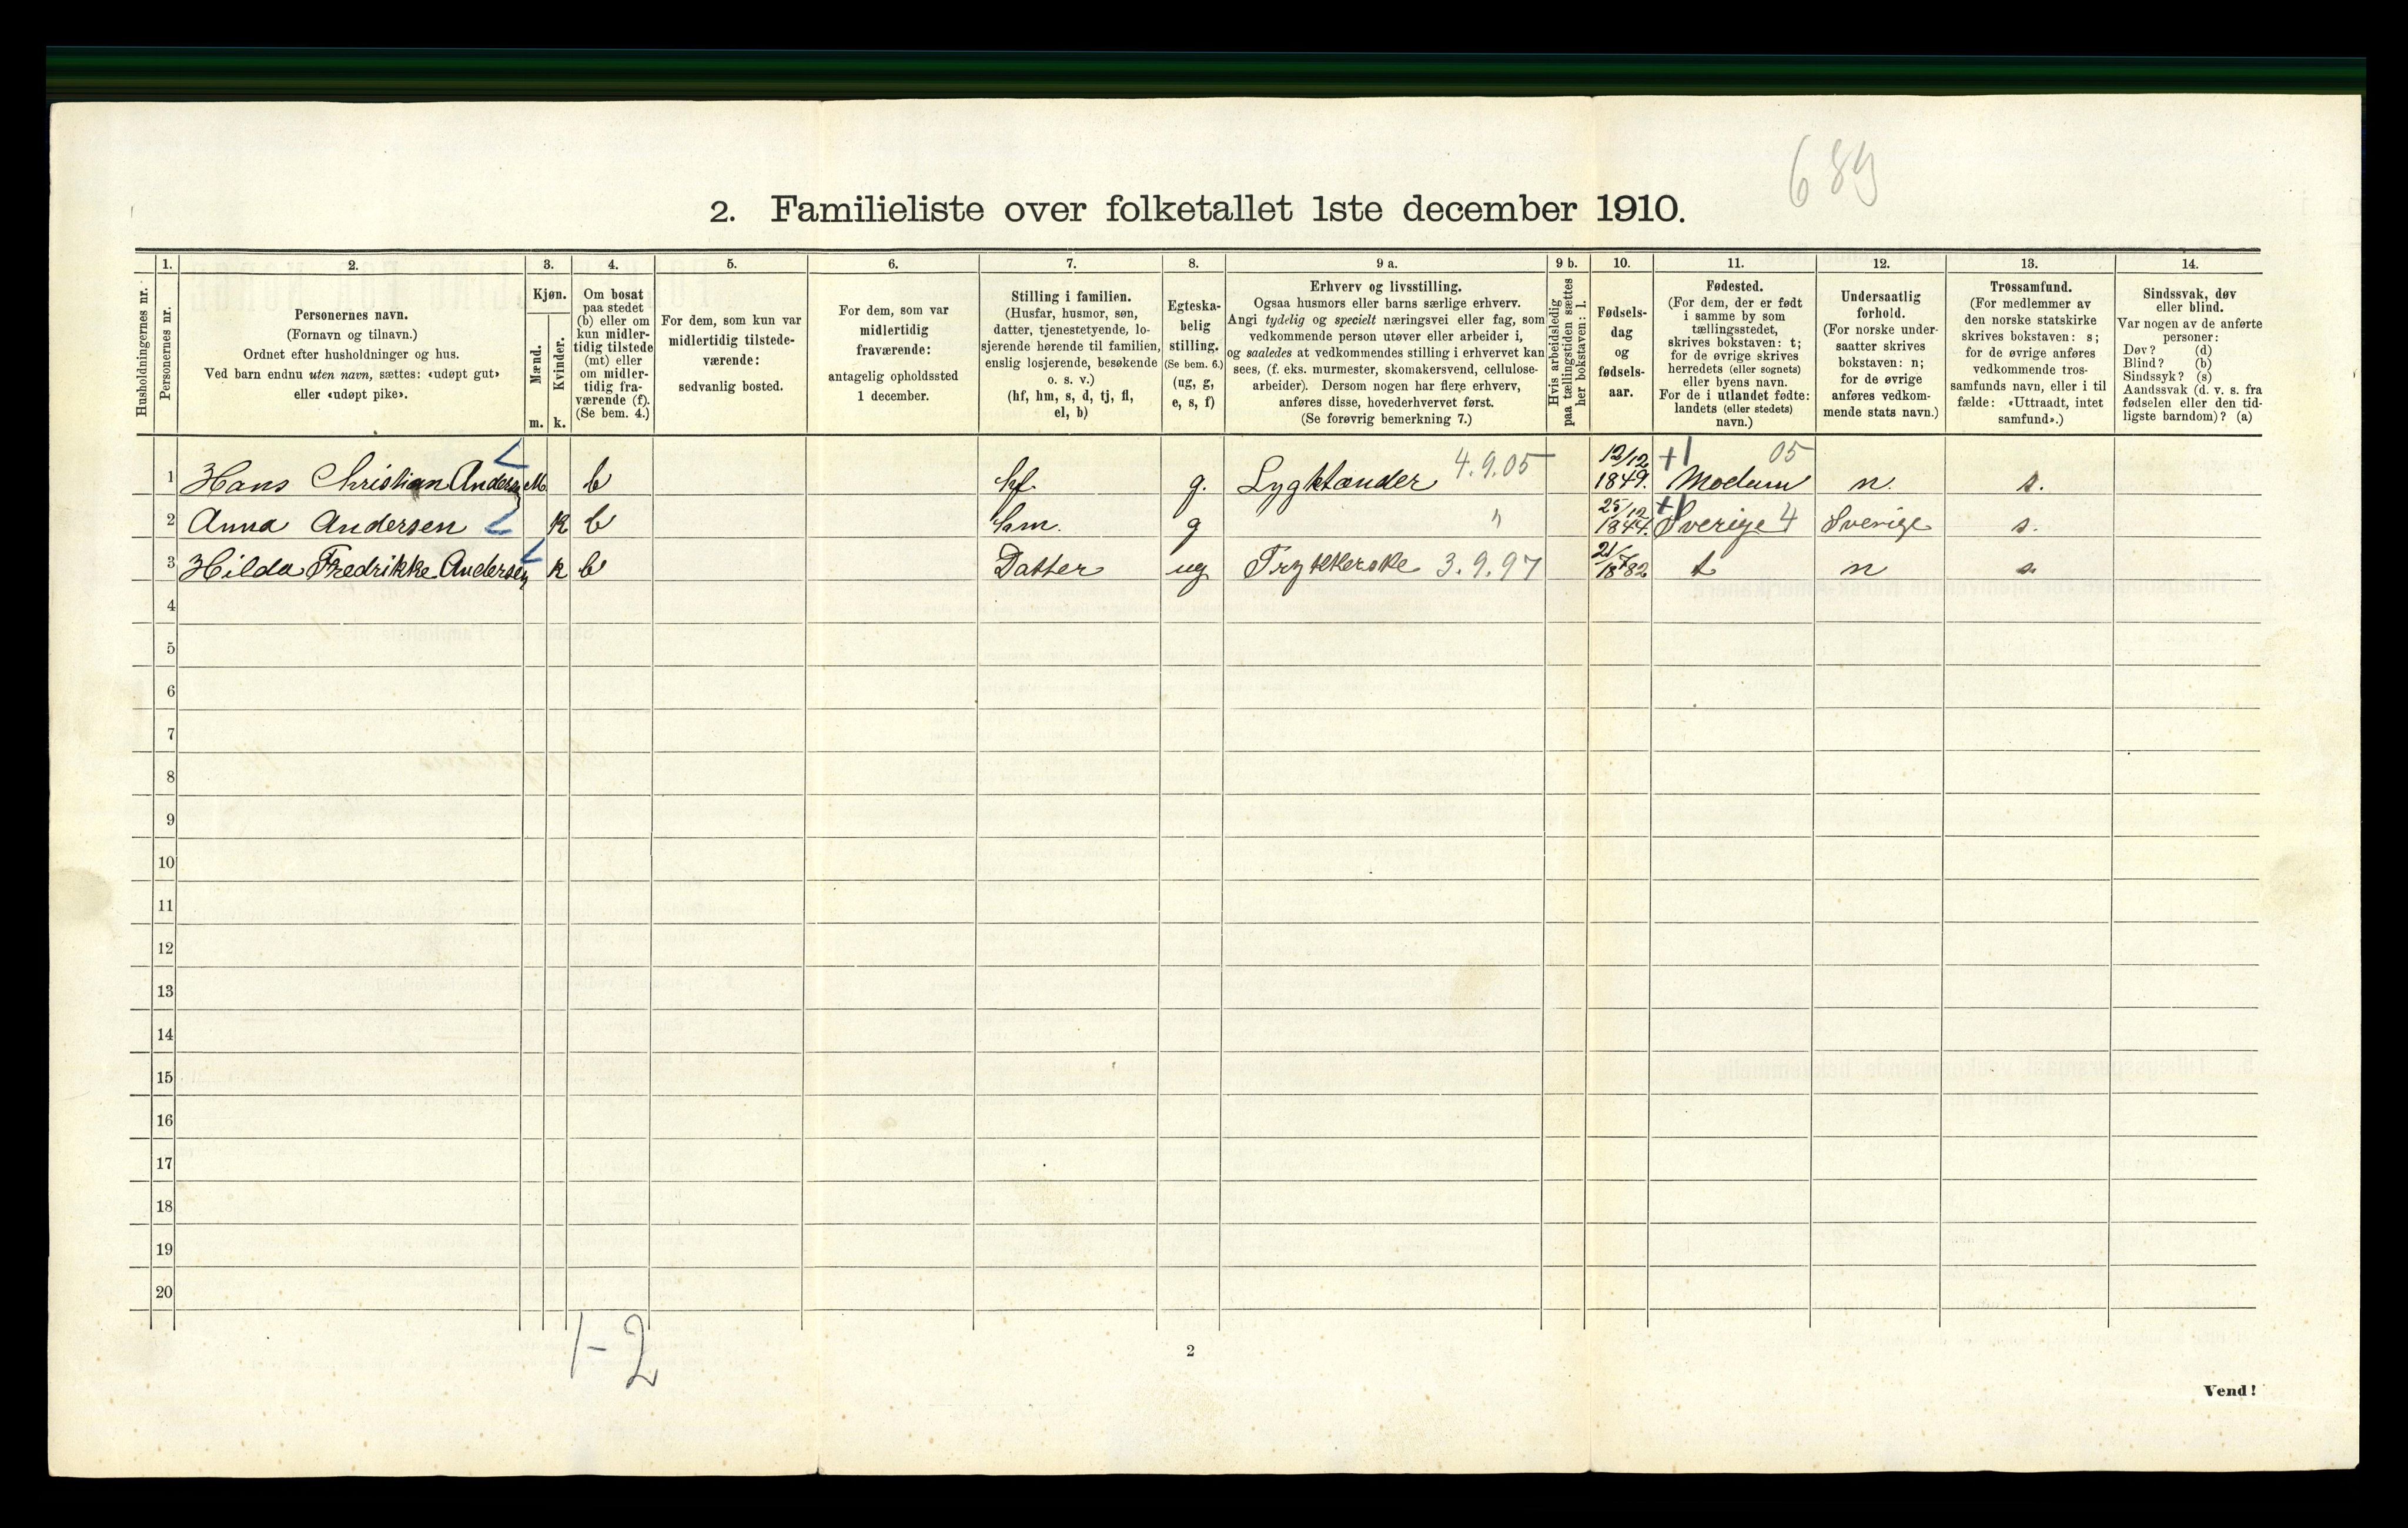 689
2. Familieliste over folketallet 1ste december 1910.
Husholdningernes nr.
1. Personernes nr.
2. Personernes navn.
(Fornavn og tilnavn.)
Ordnet efter husholdninger og hus.
Ved barn endnu uten navn, sættes: «udøpt gut»
eller «udøpt pike».
3. Kjøn.
Mænd. m.
Kvinder. k.
4. Om bosat
paa stedet
(b) eller om
kun midler-
tidig tilstede
(mt) eller
om midler-
tidig fra-
værende (f).
(Se bem. 4.)
5. For dem, som kun var
midlertidig tilstede-
værende:
sedvanlig bosted.
6. For dem, som var
midlertidig
fraværende:
antagelig opholdssted
1 december.
7. Stilling i familien.
(Husfar, husmor, søn,
datter, tjenestetyende, lo-
sjerende hørende til familien,
enslig losjerende, besøkende
o. s. v.)
(hf, hm, s, d, tj, fl,
el, b)
8. Egteska-
belig
stilling.
(Se bem. 6.)
(ug, g,
e, s, f)
9 a. Erhverv og livsstilling.
Ogsaa husmors eller barns særlige erhverv.
Angi tydelig og specielt næringsvei eller fag, som
vedkommende person utøver eller arbeider i,
og saaledes at vedkommendes stilling i erhvervet kan
sees, (f. eks. murmester, skomakersvend, cellulose-
arbeider). Dersom nogen har flere erhverv,
anføres disse, hovederhvervet først.
(Se forøvrig bemerkning 7.)
9 b. Hvis arbeidsledig
paa tællingstiden sættes
her bokstaven: l.
10. Fødsels-
dag
og
fødsels-
aar.
11. Fødested.
(For dem, der er født
i samme by som
tællingsstedet,
skrives bokstaven: t;
for de øvrige skrives
herredets (eller sognets)
eller byens navn.
For de i utlandet fødte:
landets (eller stedets)
navn.)
12. Undersaatlig
forhold.
(For norske under-
saatter skrives
bokstaven: n;
for de øvrige
anføres vedkom-
mende stats navn.)
13. Trossamfund.
(For medlemmer av
den norske statskirke
skrives bokstaven: s;
for de øvrige anføres
vedkommende tros-
samfunds navn, eller i til
fælde: «Uttraadt, intet
samfund».)
14. Sindssvak, døv
eller blind.
Var nogen av de anførte
personer:
Døv? (d)
Blind? (b)
Sindssyk? (s)
Aandssvak (d. v. s. fra
fødselen eller den tid-
ligste barndom)? (a)
1 Hans Christian Andersen M b hf. g. Lygttænder 4.9.05 12/12 1849. +1 Modum 05 n. s.
2 Anna Andersen K b hm. g " 25/12 1844. +1 Sverige 4 Sverige s.
3 Hilda Fredrikke Andersen k b Datter ug Trykkerske 3.9.97 21/7 1882 t n s.
4
5
6
7
8
9
10
11
12
13
14
15
16
17
18
19
20
1-2
2
Vend!